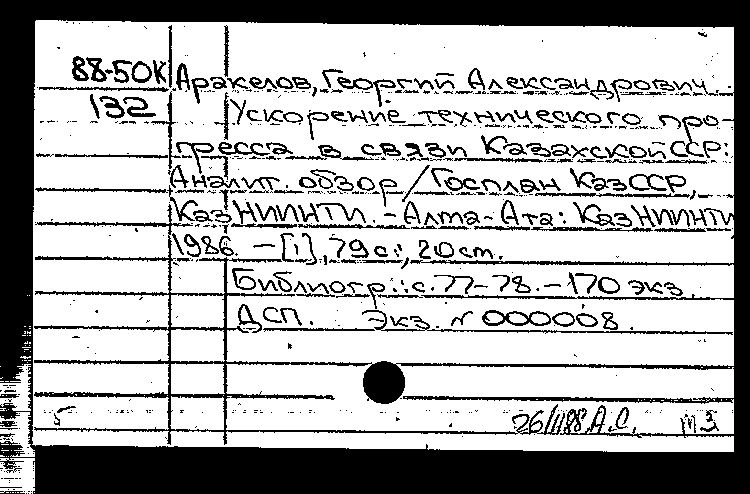 88-50К Аракелов, Георгий Александрович.
132 Ускорение технического про-
гресса в связи Казахской ССР:
Аналит. обзор / Госплан КазССР,
КазНИИНТИ. - Алма-Ата: КазНИИНТИ
1986. - [1], 79 с.; 20 см.
Библиогр.: с. 77-78. - 170 экз.
ДСП. Экз. № 000008.
5 А.С.